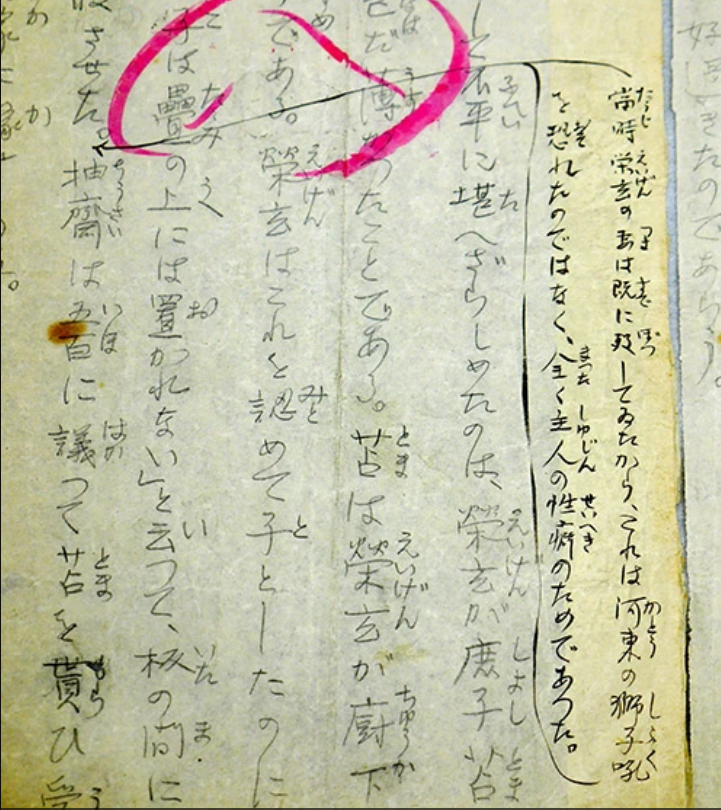 きたのであらう。
當時栄玄の妻は既に歿してゐたから、これは河東の獅子吼
を恐れたのではなく、全く主人の性癖のためであつた。
して不平に堪へざらしめたのは、榮玄が庶子苫
だ薄かつたことである。苫は榮玄が厨下
である。榮玄はこれを認めて子としたのに
子は疊の上には置かれない」と云つて、板の間に
させた。抽齋は五百に議つて苫を貰ひ受